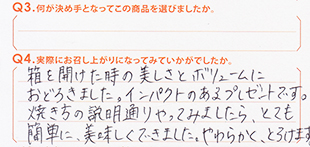 Q3.何が決め手となってこの商品を選びましたか。
Q4.実際にお召し上がりになってみていかがでしたか。
箱を開けた時の美しさとボリュームに
おどろきました。インパクトのあるプレゼントです。
焼き方の説明通りやってみましたら、とても
簡単に、美味しくできました。やわらかく、とろけます